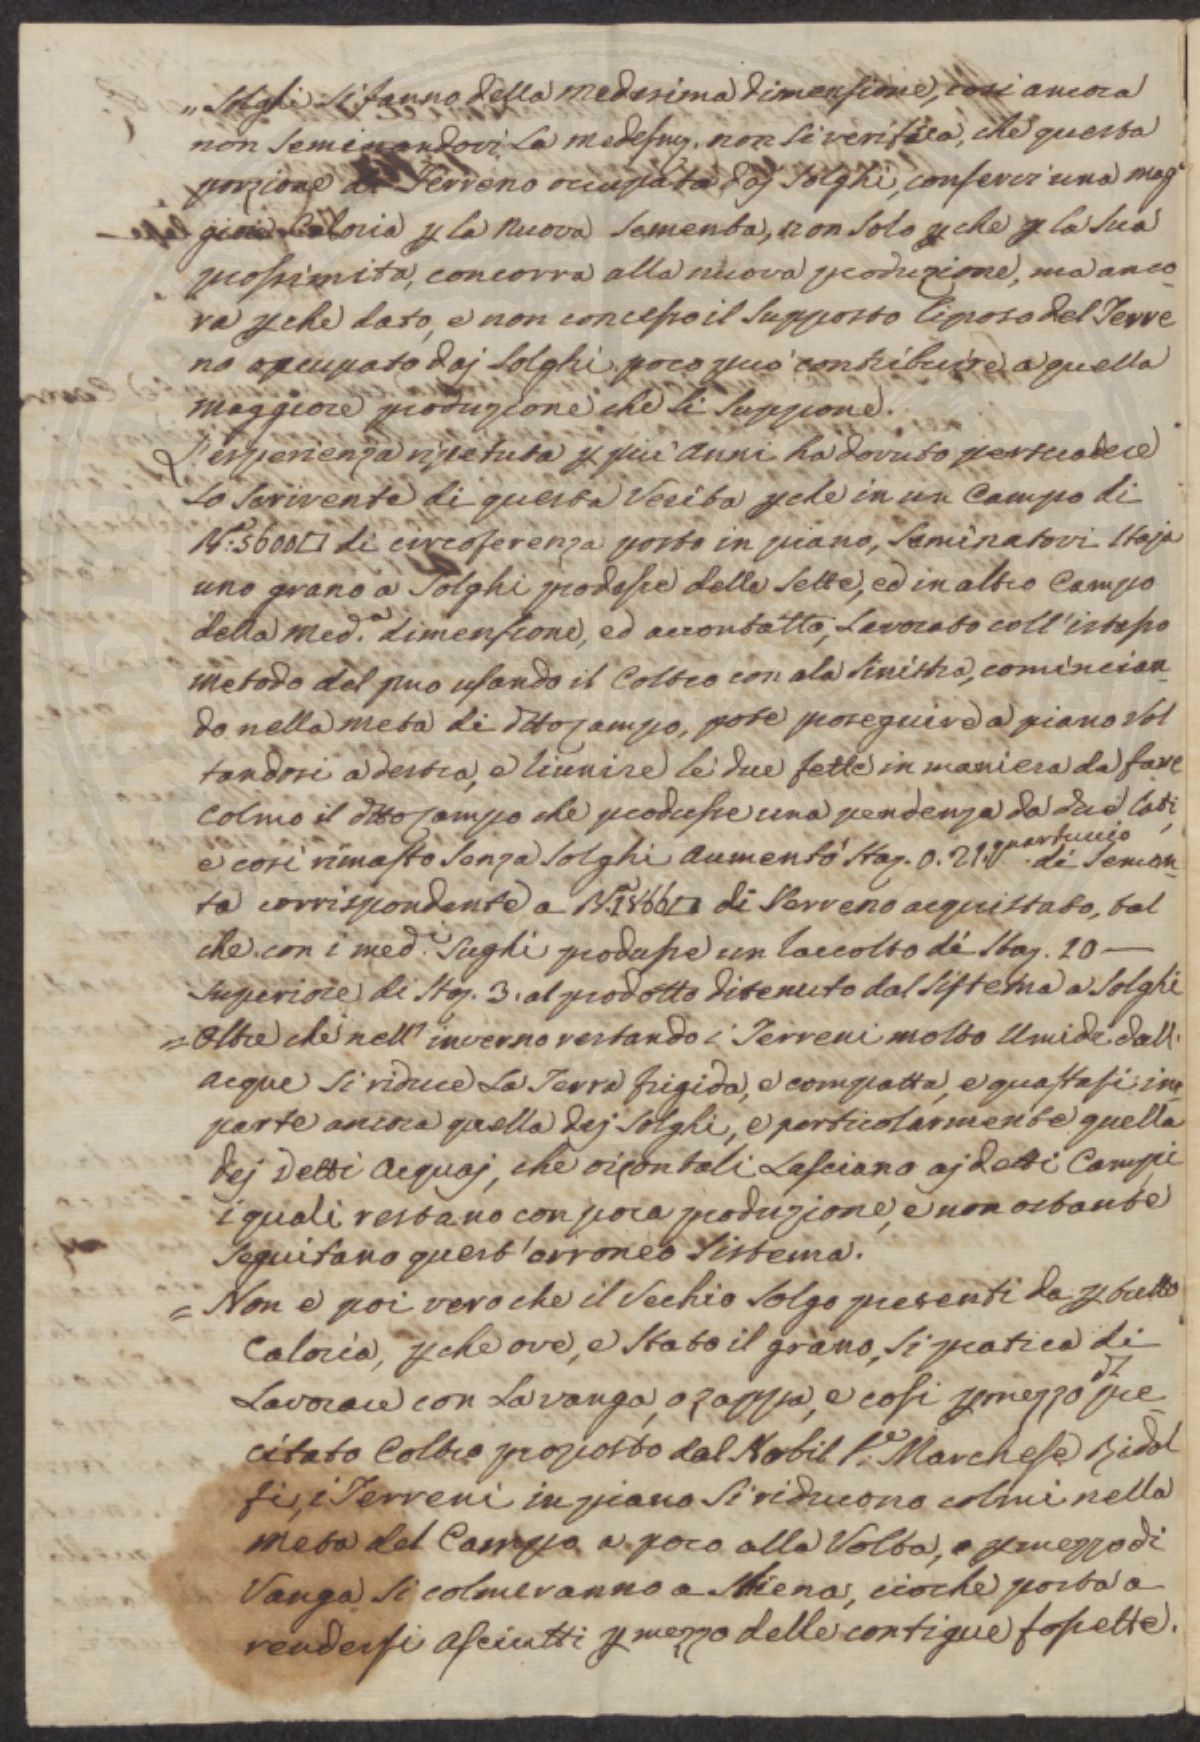 „ Solghi si fanno della medesima dimensione, così ancora
non seminandovi la medesmj. non si verifica, che questa
porzione di Terreno occupata daj Solghi, conservi una mag
giore Caloria p la nuova sementa, non solo pche p la sua
prossimità, concorra alla nuova produzione, ma anco
ra pche dato, e non concesso il supposto riposo del Terre
no occupato daj Solghi poco può contribuire a quella
maggiore produzione che si suppone.
L'esperienza ripetuta p più anni ha dovuto persuadere
Lo Scrivente di questa Verità pche in un Campo di
N.º 5600□ di circoferenza posto in piano, seminatovi Staja
uno grano a Solghi produsse delle sette, ed in altro Campo
della med.ª dimensione, ed accontatta, Lavorato coll'istesso
metodo del pno usando il Coltro con ala sinistra, comincian
do nella metà di dtto campo, potè proseguire a piano vol
tandosi a destra, e riunire le due fette in maniera da fare
Colmo il dtto campo che produsse una pendenza da due lati,
e così rimasto senza Solghi aumentò Staj. 0. 21. quartuccio di semen
ta corrispondente a N.º 1866□ di Terreno acquistato, tal
che con i med.i sughi produsse un raccolto di Staj. 10 —
superiore di Staj. 3. al prodotto ditenuto dal sistema a Solghi
= Oltre che nell'inverno restando i Terreni molto umidi dall'
acque si riduce la Terra frigida, e compatta, e guastasi in
parte ancora quella dej Solghi, e particolarmente quella
dej Detti Acquaj, che orizontali Lasciano aj detti Campi
i quali restano con poca produzione, e non ostante
seguitano quest'erroneo sistema.
= Non e poi vero che il Vechio Solgo presenti da p tutto
Caloria, pche ove, e stato il grano, si pratica di
Lavorare con la vanga, o zappa, e così p mezzo dl pre
citato Coltro proposto dal Nobil S.e Marchese Ridol
fi, i Terreni in piano si riducono colmi nella
metà del Campo a poco alla Volta, o p mezzo di
Vanga si colmeranno a Schiena, cioche porta a
rendersi asciutti p mezzo delle contigue fossette.